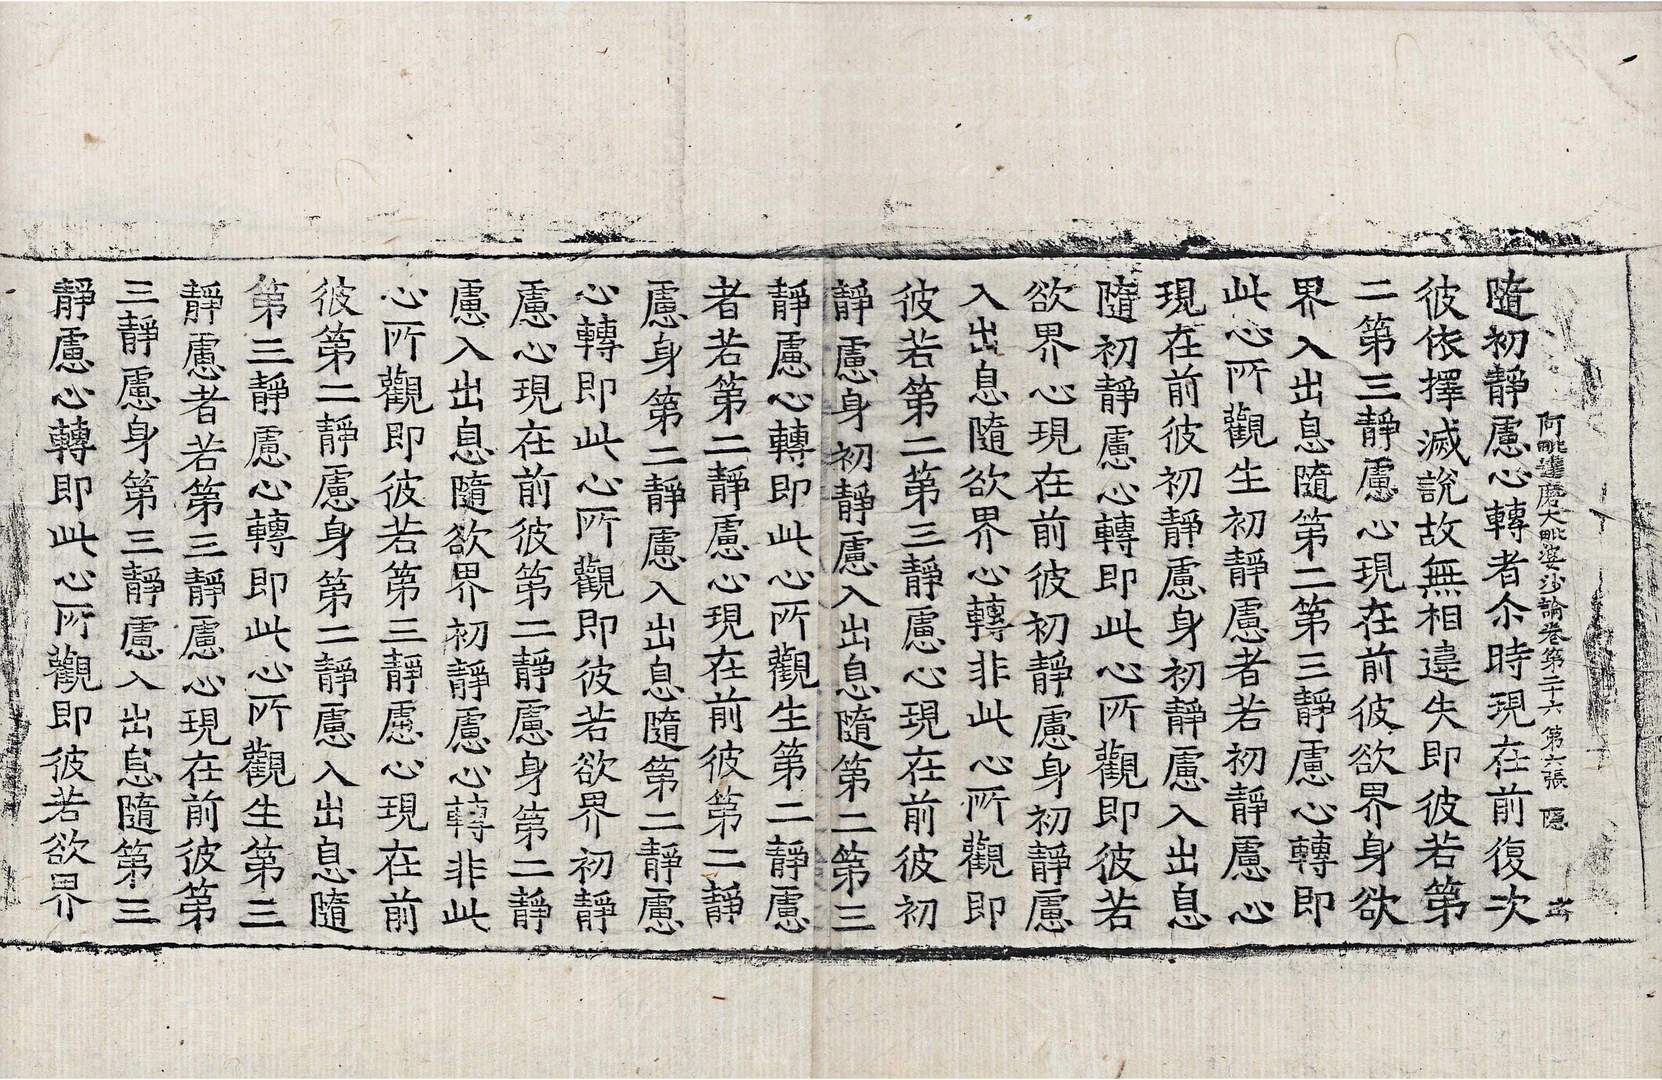 阿毗達磨大毗婆沙論卷第二十六 第六張 隱
隨初靜慮心轉者尒時現在前復次
彼依擇滅說故無相違失即彼若第
二第三靜慮心現在前彼欲界身欲
界入出息隨第二第三靜慮心轉即
此心所觀生初靜慮者若初靜慮心
現在前彼初靜慮身初靜慮入出息
隨初靜慮心轉即此心所觀即彼若
欲界心現在前彼初靜慮身初靜慮
入出息隨欲界心轉非此心所觀即
彼若第二第三靜慮心現在前彼初
靜慮身初靜慮入出息隨第二第三
靜慮心轉即此心所觀生第二靜慮
者若第二靜慮心現在前彼第二靜
慮身第二靜慮入出息隨第二靜慮
心轉即此心所觀即彼若欲界初靜
慮心現在前彼第二靜慮身第二靜
慮入出息隨欲界初靜慮心轉非此
心所觀即彼若第三靜慮心現在前
彼第二靜慮身第二靜慮入出息隨
第三靜慮心轉即此心所觀生第三
靜慮者若第三靜慮心現在前彼第
三靜慮身第三靜慮入出息隨第三
靜慮心轉即此心所觀即彼若欲界